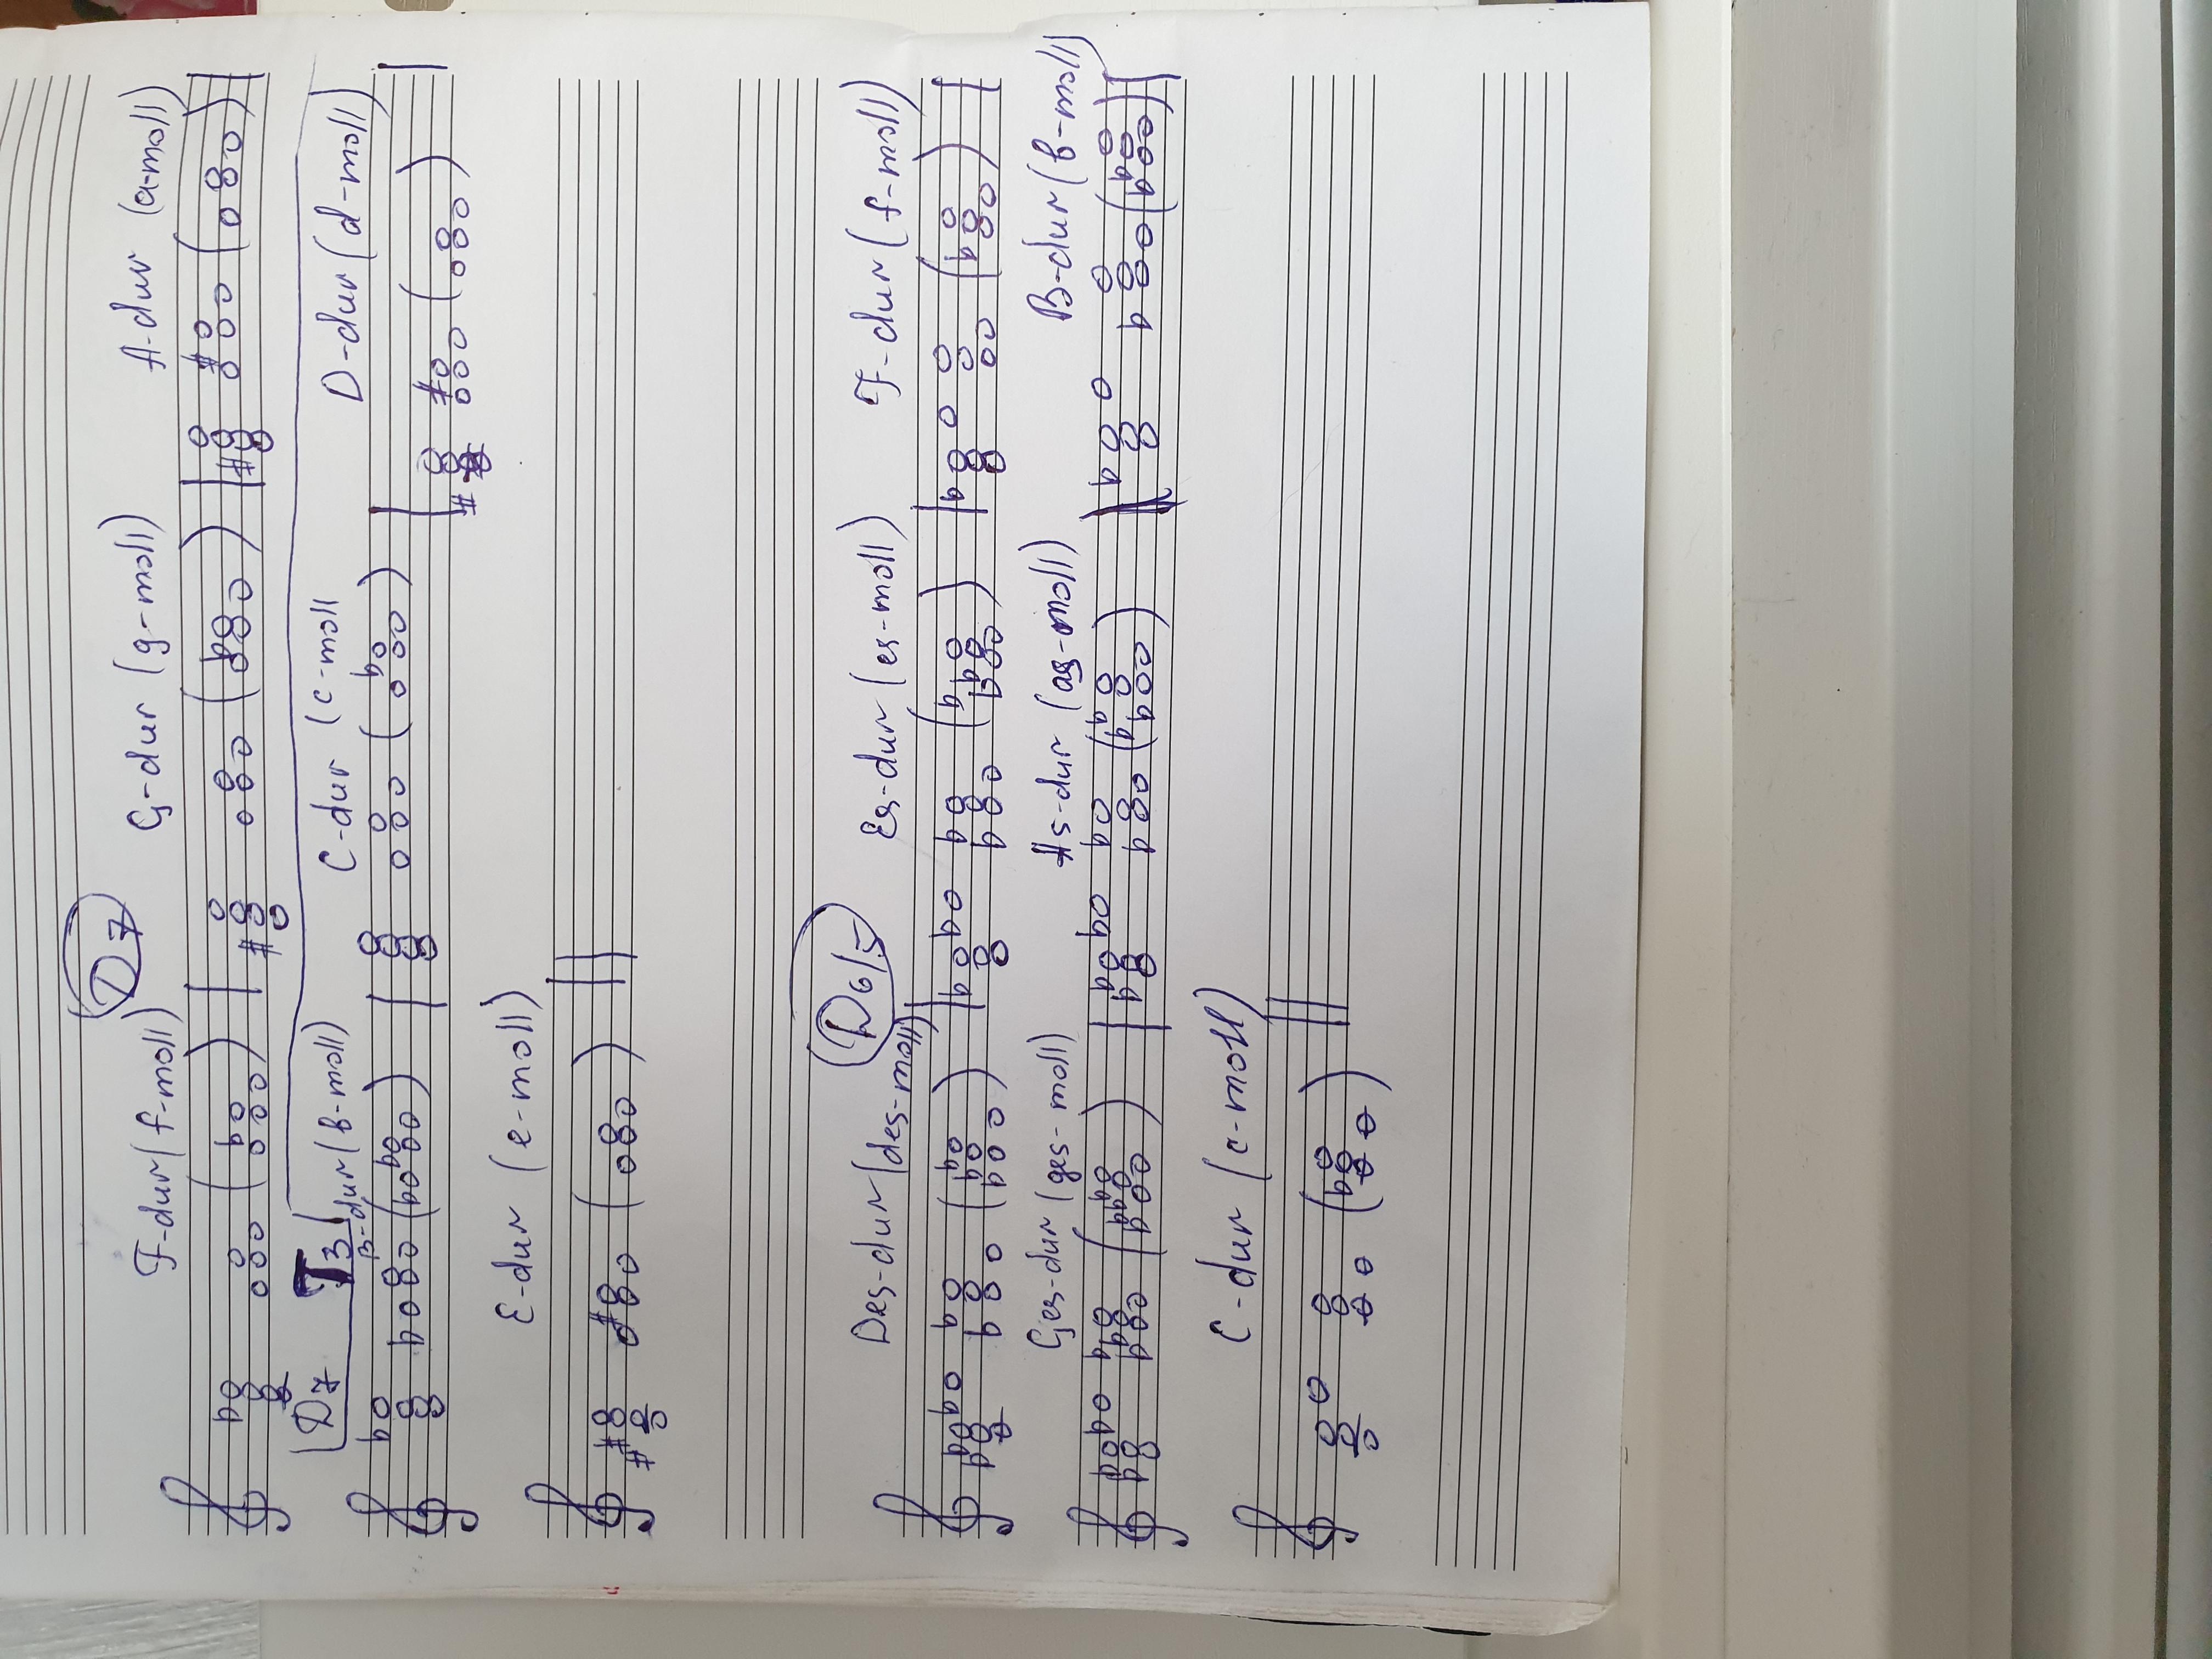 D7
F-dur (f-moll) G-dur (g-moll) A-dur (a-moll)
D7 T3 B-dur (b-moll) C-dur (c-moll D-dur (d-moll)
E-dur (e-moll)
D6/5
Des-dur (des-moll) Es-dur (es-moll) F-dur (f-moll)
Ges-dur (ges-moll) As-dur (as-moll) B-dur (b-moll)
C-dur (c-moll)